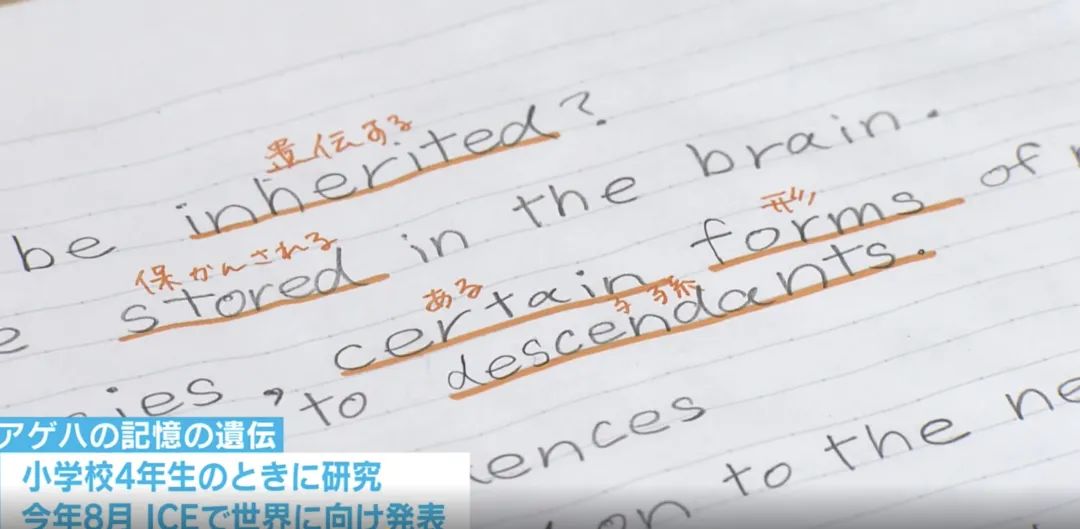 遺伝する
be inherited?
保かんされる
stored in the brain.
ある 形
certain forms of
子孫
, to descendants.
ences
to the ne
on
アゲハの記憶の遺伝
小学校4年生のときに研究
今年8月 ICEで世界に向け発表